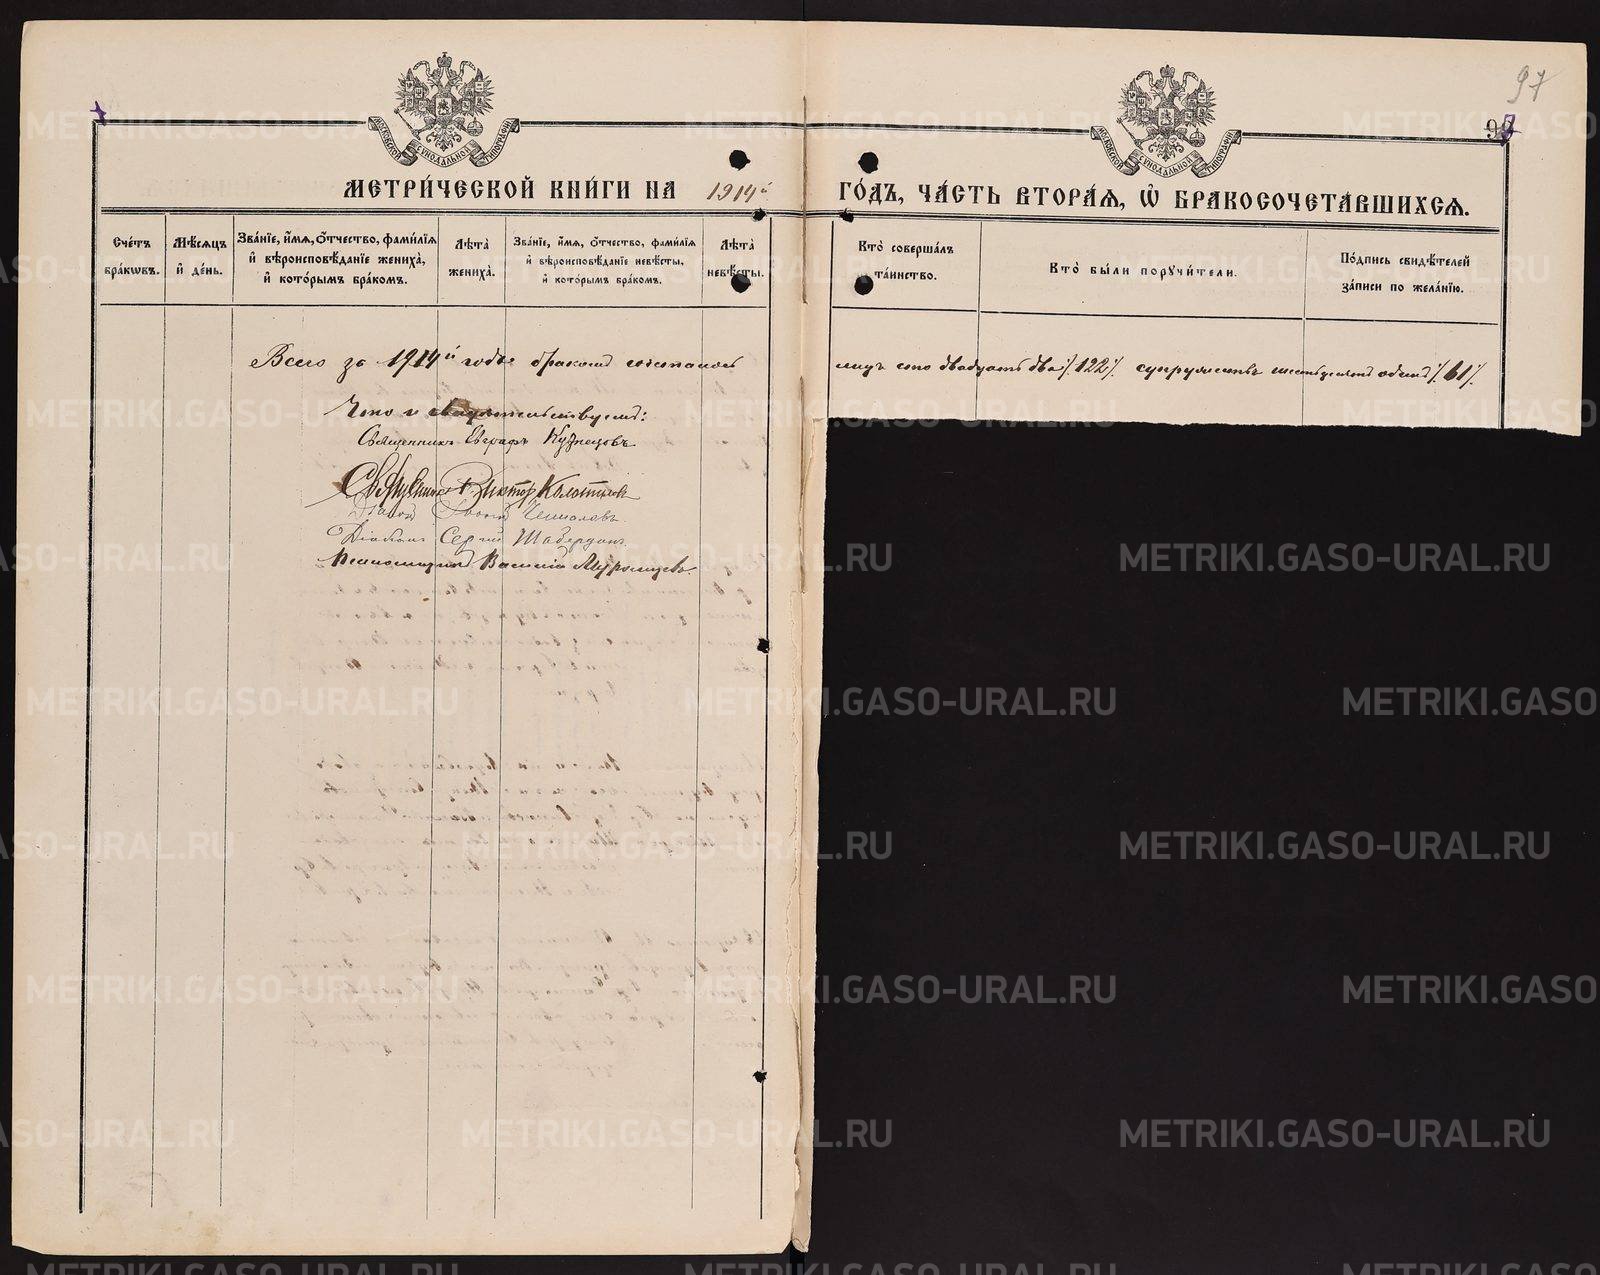 97
МОСКОВСКОЙ СѴНОДАЛЬНОЙ ТИПОГРАФІИ
МОСКОВСКОЙ СѴНОДАЛЬНОЙ ТИПОГРАФІИ
МЕТРИ́ЧЕСКОЙ КНИ́ГИ НА 1914й ГО́ДЪ, ЧА́СТЬ ВТОРА́Ѧ, Ѽ БРАКОСОЧЕТА́ВШИХСѦ.
Сче́тъ бра́кѡвъ.
Мѣ́сяцъ и҆ де́нь.
Зва́нїе, и҆́мѧ, ѻ҆́тчество, фами́лїѧ и҆ вѣроисповѣ́данїе жениха̀, и҆ кото́рымъ бра́комъ.
Лѣ́та жениха̀.
Зва́нїе, и҆́мѧ, ѻ҆́тчество, фами́лїѧ и҆ вѣроисповѣ́данїе невѣ́сты, и҆ кото́рымъ бра́комъ.
Лѣ́та невѣ́сты.
Кто̀ соверша́лъ та́инство.
Кто̀ бы́ли порꙋчи́тели.
По́дпись свидѣ́телей за́писи по жела́нїю.
Всего за 1914й годъ бракомъ сочеталось лицъ сто двадцать два /.122/. супружествъ шестьдесятъ одинъ /.61/.
Что и свидѣтельствуемъ:
Священникъ Евграфъ Кузнецовъ
Священникъ Викторъ Колотиловъ
Діаконъ
Діаконъ Сергій
Псаломщикъ Василій Муромцевъ.
METRIKI.GASO-URAL.RU